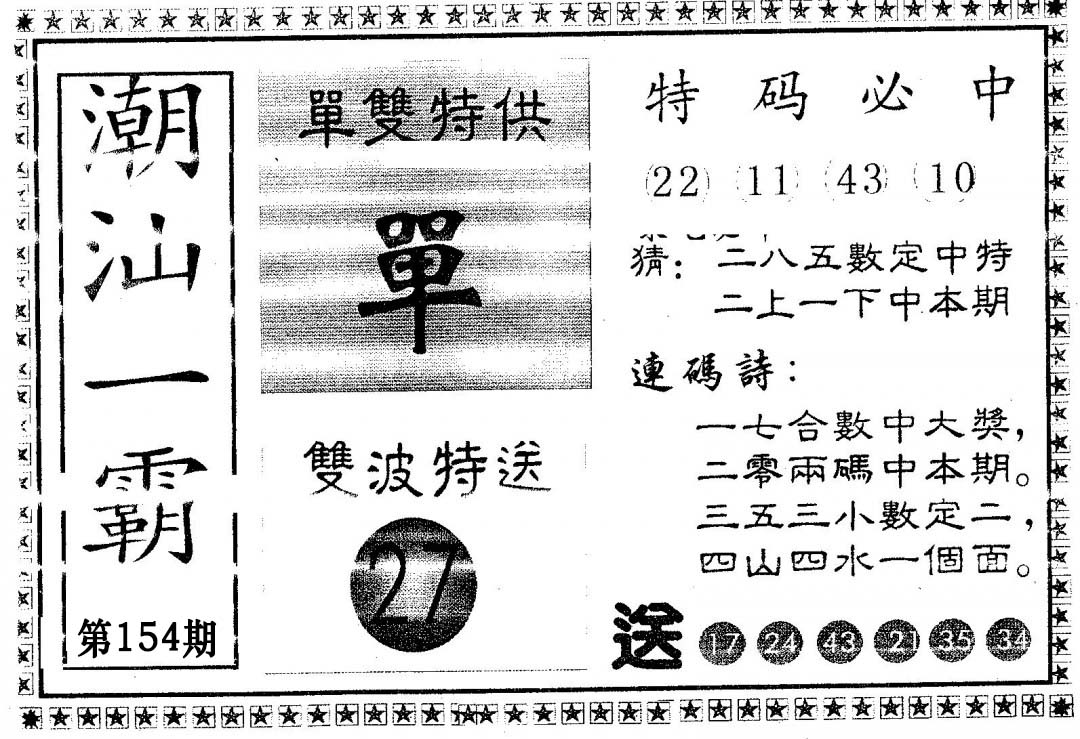 潮汕一霸
第154期
單雙特供
單
雙波特送
27
特码必中
(22) (11) (43) (10)
猜：二八五數定中特
二上一下中本期
連碼詩：
一七合數中大獎，
二零兩碼中本期。
三五三小數定二，
四山四水一個面。
送 17 24 43 21 35 34